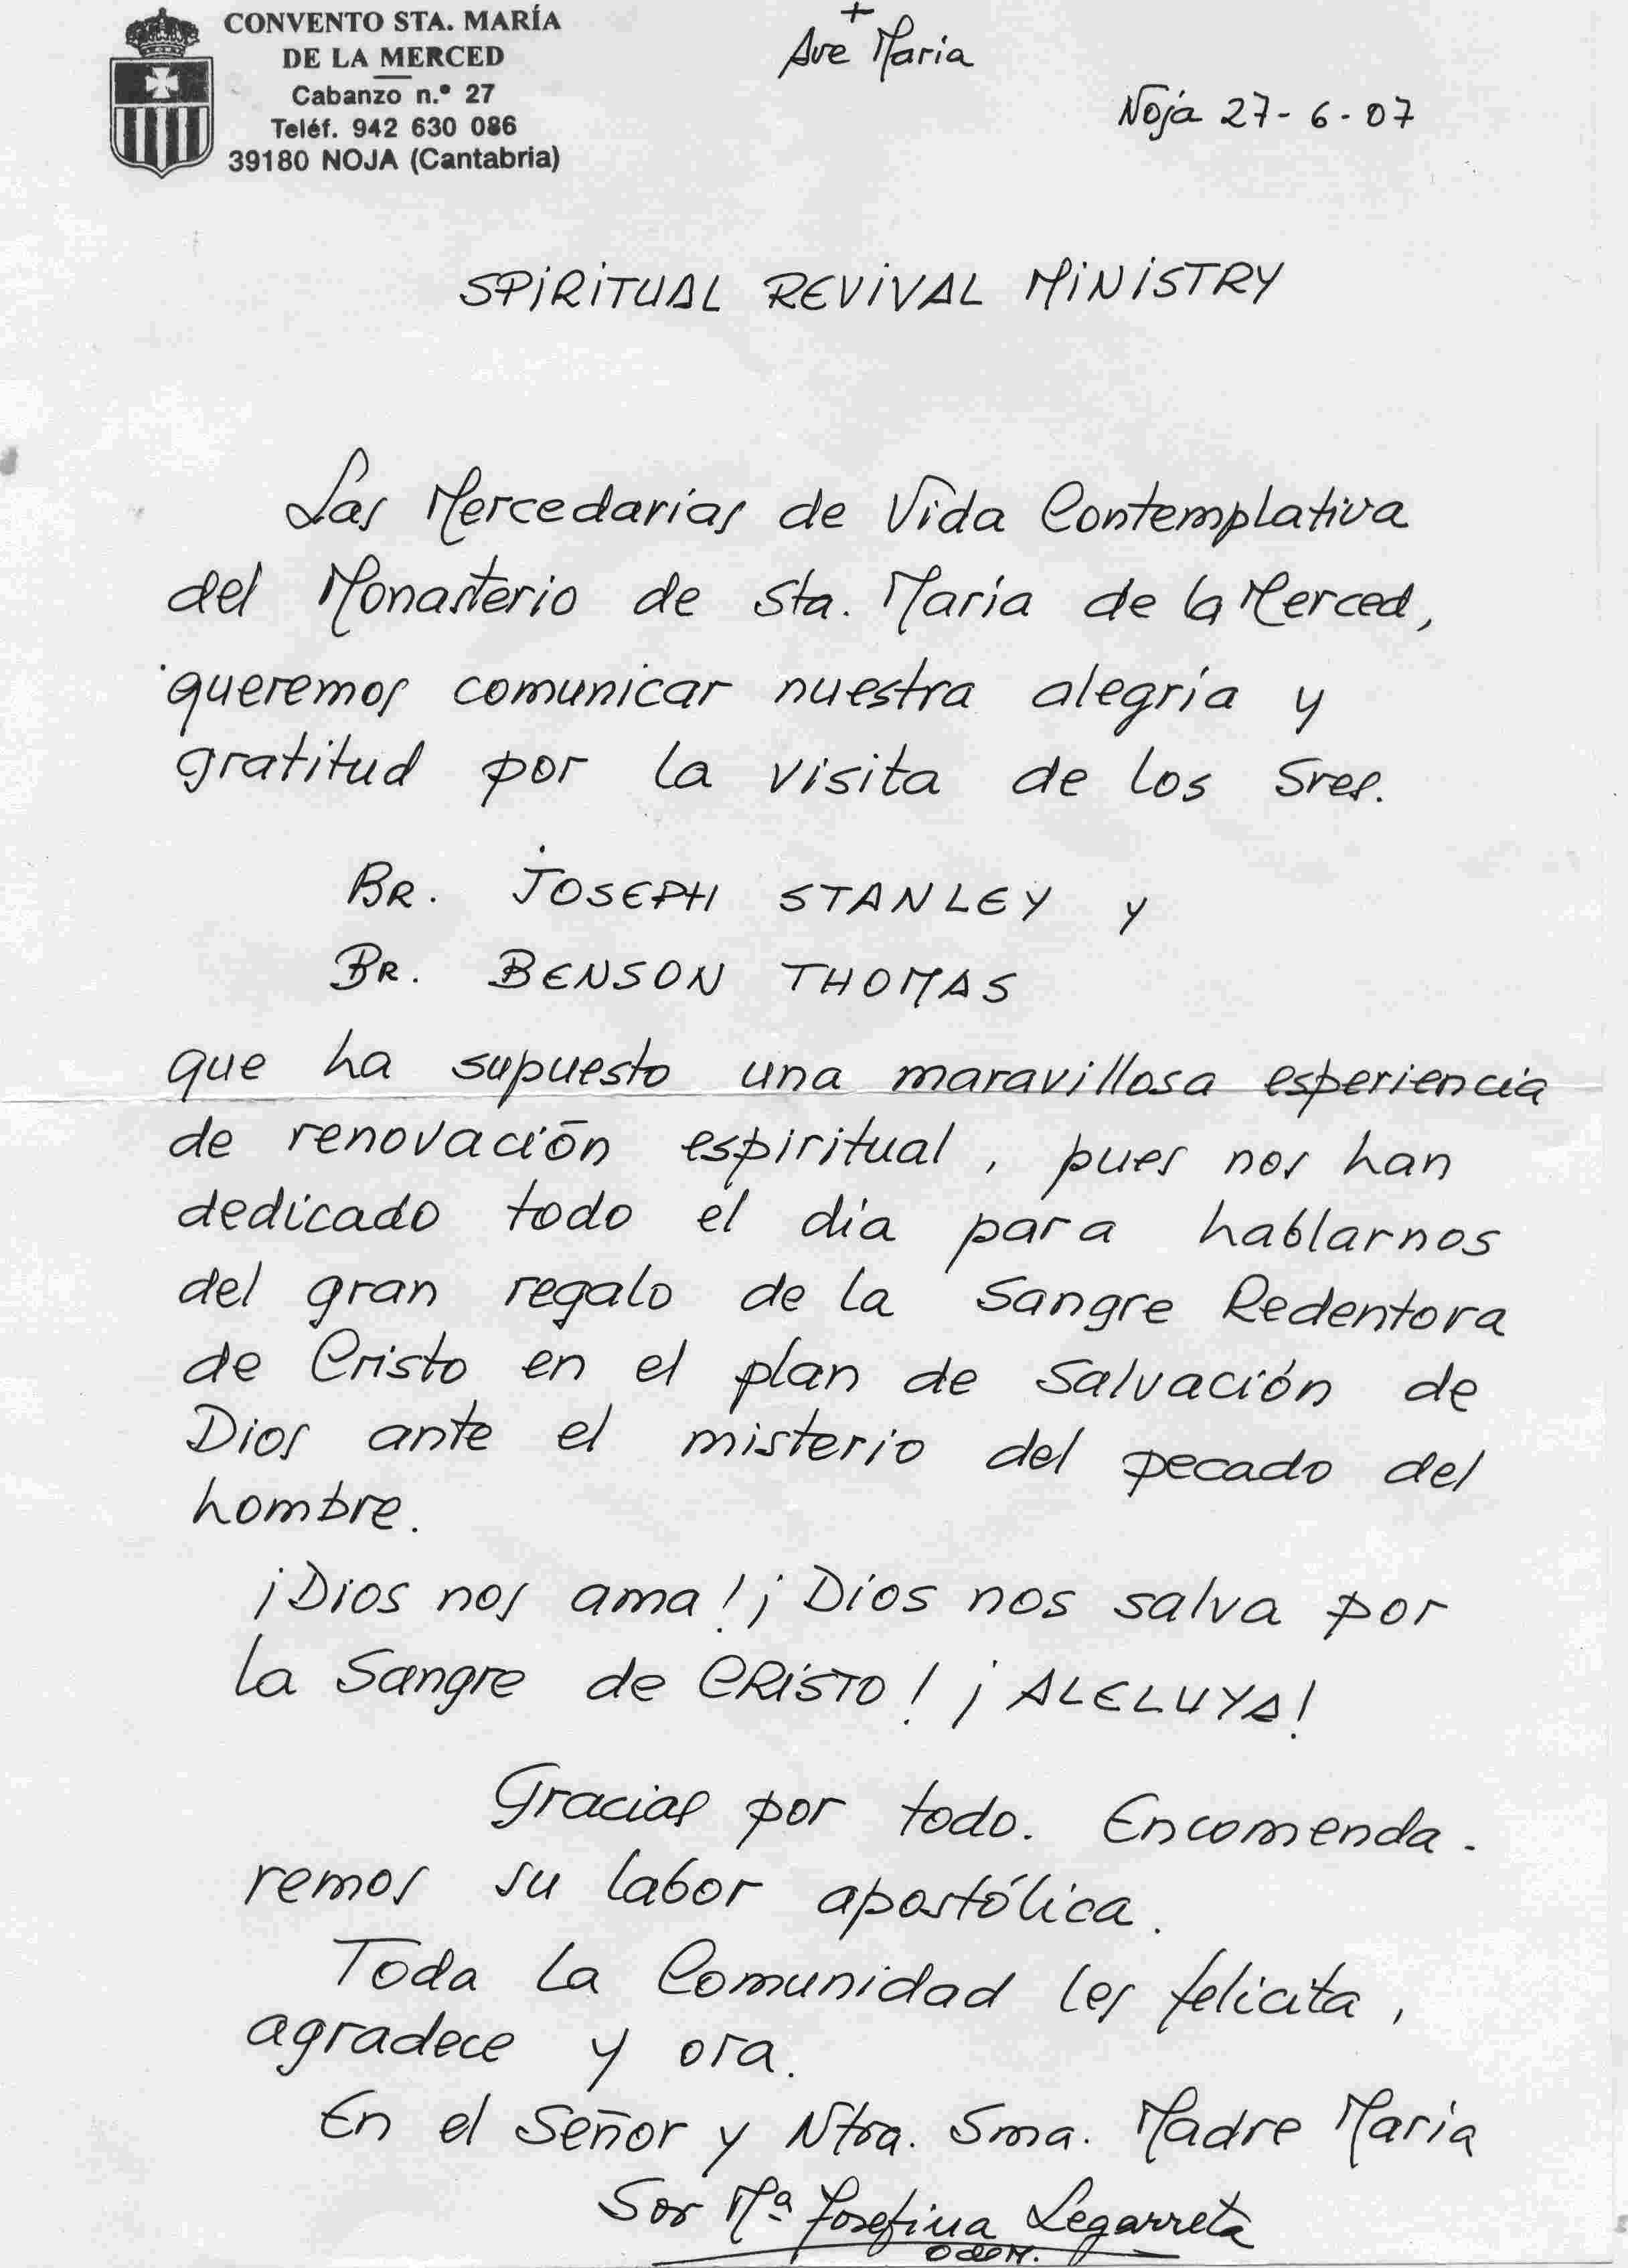 CONVENTO STA. MARÍA
DE LA MERCED
Cabanzo n.º 27
Teléf. 942 630 086
39180 NOJA (Cantabria)
+
Ave Maria
Noja 27-6-07
SPIRITUAL REVIVAL MINISTRY
Las Mercedarias de Vida Contemplativa
del Monasterio de Sta. María de la Merced,
queremos comunicar nuestra alegría y
gratitud por la visita de los Sres.
BR. JOSEPH STANLEY y
BR. BENSON THOMAS
que ha supuesto una maravillosa esperiencia
de renovación espiritual, pues nos han
dedicado todo el día para hablarnos
del gran regalo de la Sangre Redentora
de Cristo en el plan de Salvación de
Dios ante el misterio del pecado del
hombre.
¡Dios nos ama! ¡Dios nos salva por
la Sangre de CRISTO! ¡ALELUYA!
Gracias por todo. Encomenda-
remos su labor apostólica.
Toda la Comunidad les felicita,
agradece y ora.
En el Señor y Ntra. Sma. Madre María
Sor Mª Josefina Legarreta
OdeM.